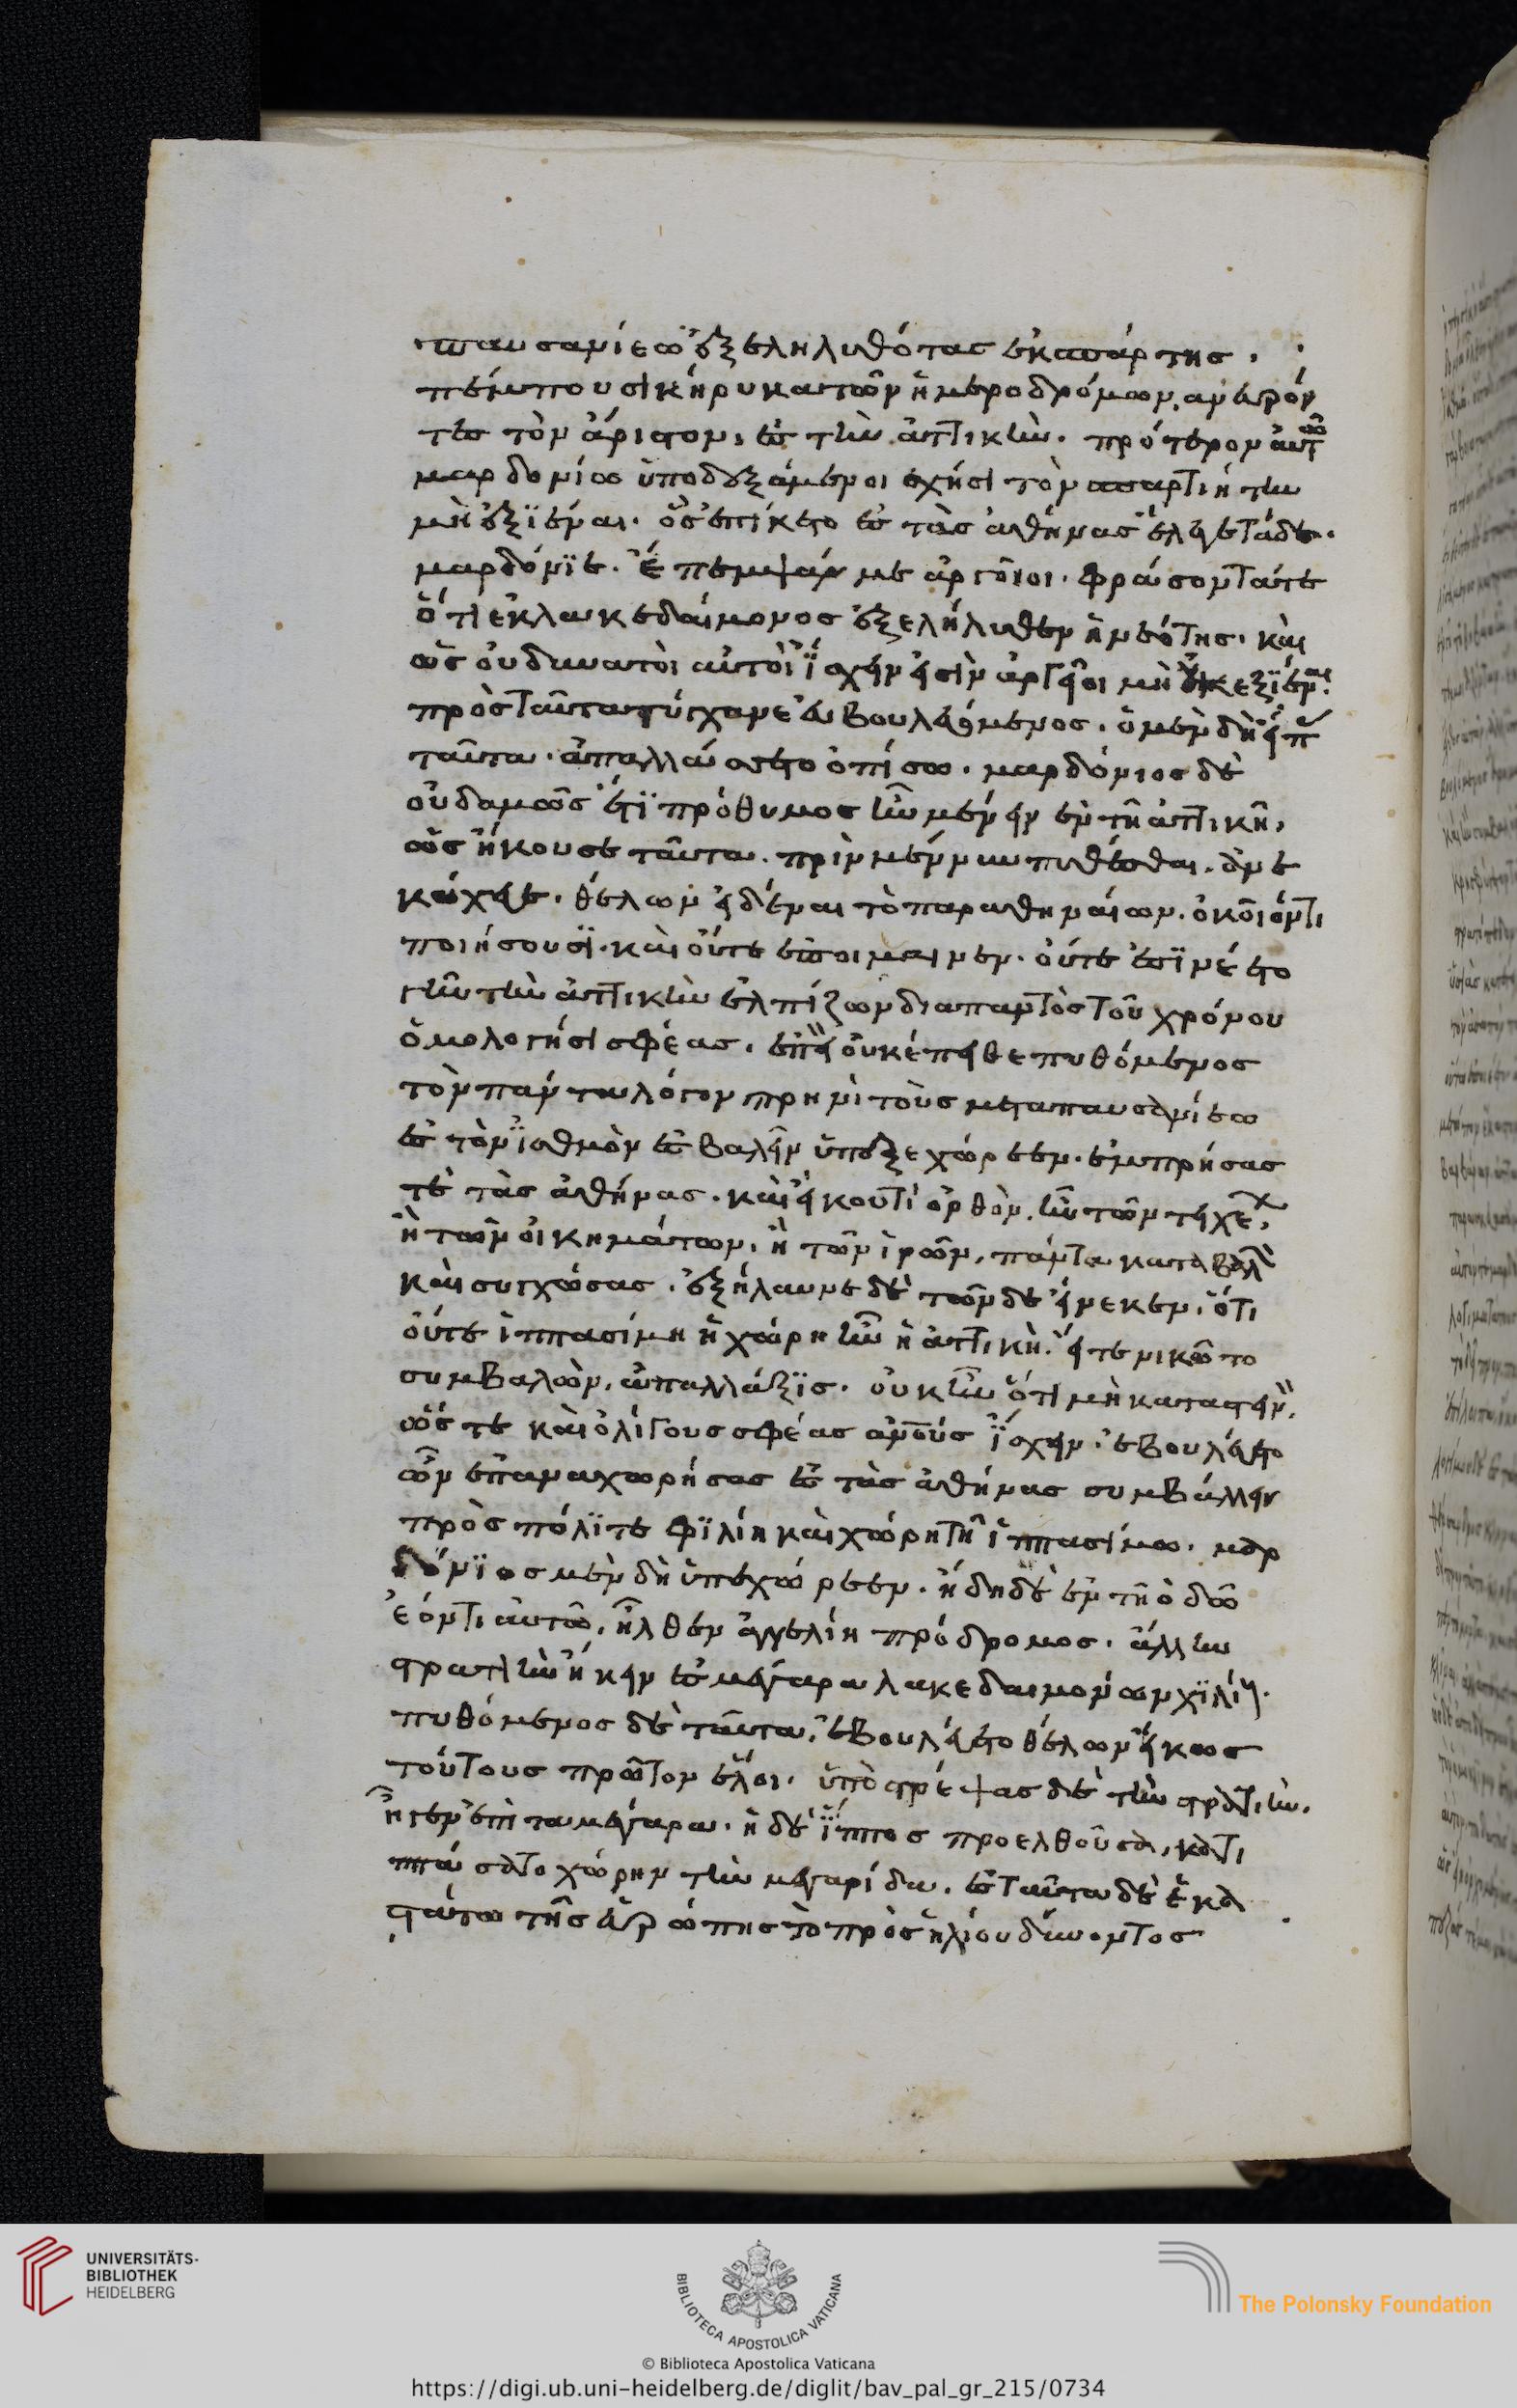 παυσανίεω ἐξεληλυθότας ἐκ σπάρτης.
πέμπουσι κήρυκα τῶν ἡμεροδρόμων, ἀνευρόν
τες τὸν ἄριστον, ἐς τὴν ἀττικήν. πρότερον αὐτῶ
μαρδονίω ὑποδεξάμενοι σχήσι τὸν σπαρτιήτην
μὴ ἐξϊέναι. ὃς ἐπίκετο ἐς τὰς ἀθήνας ἔλεγε τάδε.
μαρδόνϊε. ἔπεμψάν με ἀργεῖοι. φράσοντα τε
ὅτι ἐκ λακεδαίμονος ἐξελήλυθεν ἡ νεότης. καὶ
ὡς οὐ δυνατοὶ αὐτοὶ ἴσχειν εἰσὶν ἀργεῖοι μὴ οὐκ ἐξϊέναι.
πρὸς ταῦτα τύγχανε εὖ βουλευόμενος. ὁ μὲν δὴ εἴπ
ταῦτα. ἀπαλλάσσετο ὀπίσω. μαρδόνιος δὲ
οὐδαμῶς ἔτϊ πρόθυμος ἦν μένειν ἐν τῆ ἀττικῆ,
ὡς ἤκουσε ταῦτα. πρὶν μέν νυν πυθέσθαι. ἀνε
κώχευε. θέλων εἰδέναι τὸ παρ ἀθηναίων. ὁκοῖόν τι
ποιήσουσϊ. καὶ οὔτε ἐπήμαινεν. οὔτε ἐσϊνέετο
γῆν τὴν ἀττικὴν ἐλπίζων διαπαντὸς τοῦ χρόνου
ὁμολογήσι σφέας. ἐπεὶ οὐκ ἔπειθε πυθόμενος
τὸν πάντα λόγον πρηνὶ τοὺς μετὰ παυσανίεω
ἐς τὸν ἰσθμὸν ἐσβαλεῖν ὑπεξεχώρεεν. ἐμπρήσας
τὲ τὰς ἀθήνας. καὶ εἴ κου τι ὀρθὸν ἦν τῶν τειχέων,
ἢ τῶν οἰκημάτων, ἢ τῶν ἱρῶν, πάντα καταβαλὼν
καὶ συγχώσας. ἐξήλαυνε δὲ τῶνδε εἵνεκεν. ὅτι
οὔτε ἱππασίμη ἡ χώρη ἦν ἡ ἀττικὴ. εἴτε νικῶτο
συμβαλὼν, ἀπαλλάξϊς. οὐκ ἦν ὅτι μὴ κατὰ στεινὸν,
ὥστε καὶ ὀλίγους σφέας ἀνοὺς ἴσχειν. ἐβουλεύετο
ὦν ἐπαναχωρήσας ἐς τὰς ἀθήνας συμβάλλειν
πρὸς πόλϊτε φϊλίη καὶ χώρη τῆ ἱππασίμω. μαρ
δόνϊος μὲν δὴ ὑπεχώρεεν. ἤδη δὲ ἐν τῆ ὁδῶ
ἐόντι αὐτῶ, ἦλθεν ἀγγελίη πρόδρομος. ἄλλην
στρατιὴν ἥκειν ἐς μέγαρα λακεδαιμονίων χϊλίην.
πυθόμενος δὲ ταῦτα, ἐβουλεύετο θέλων εἴ κως
τούτους πρῶτον ἕλοι. ὑποστρέψας δὲ τὴν στρατιὴν,
ἦγεν ἐπὶ τὰ μέγαρα. ἡ δὲ ἵππος προελθοῦσα, κατι
ππάσατο χώρην τὴν μεγαρίδα. ἐς ταύτην δὲ ἑκα
στάτω τῆς εὐρώπης τὸ πρὸς ἡλίου δύνοντος
UNIVERSITÄTS-
BIBLIOTHEK
HEIDELBERG
BIBLIOTECA APOSTOLICA VATICANA
The Polonsky Foundation
© Biblioteca Apostolica Vaticana
https://digi.ub.uni-heidelberg.de/diglit/bav_pal_gr_215/0734